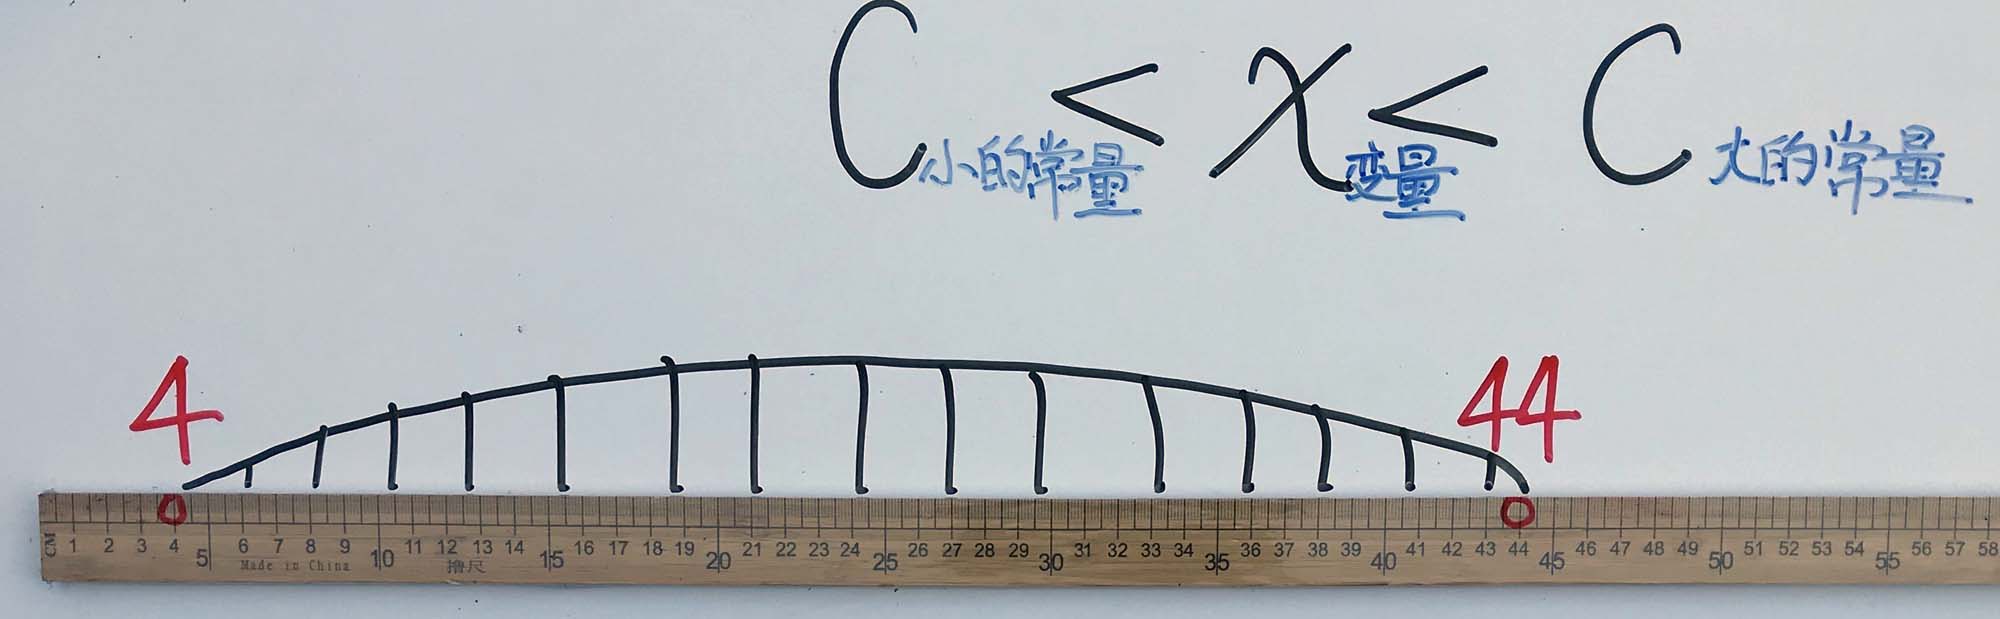 C小的常量 < x变量 < C大的常量
4 44
0 0
CM 1 2 3 4 5 6 7 8 9 10 11 12 13 14 15 16 17 18 19 20 21 22 23 24 25 26 27 28 29 30 31 32 33 34 35 36 37 38 39 40 41 42 43 44 45 46 47 48 49 50 51 52 53 54 55 56 57 58
Made in China 撸尺